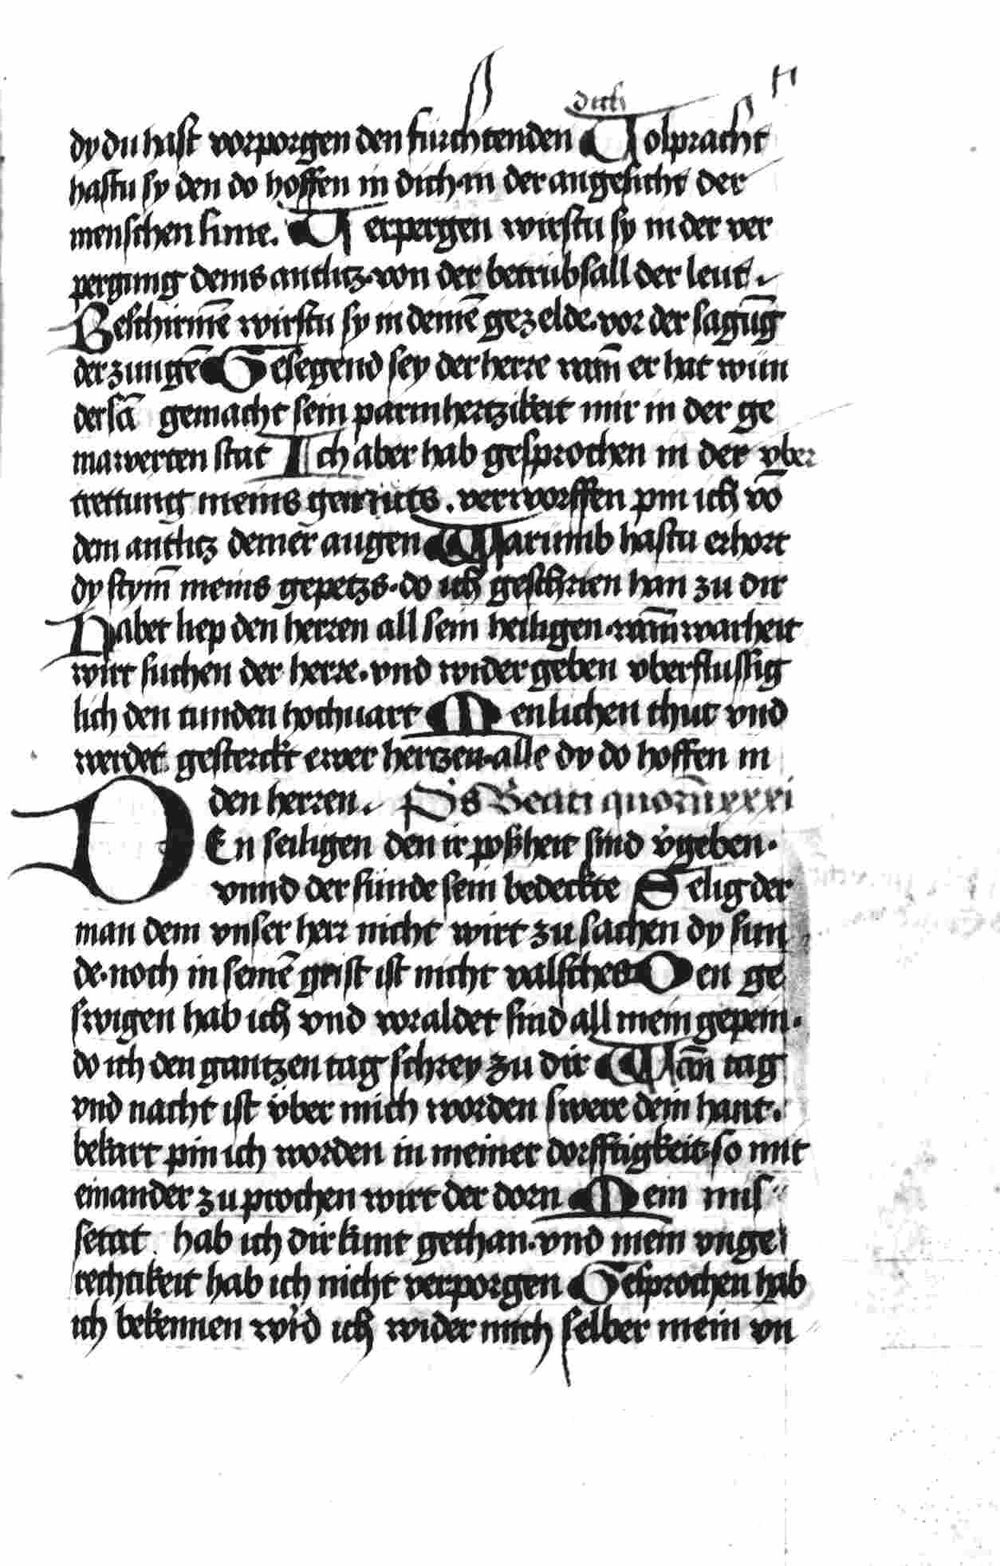 dich
dy du hast vorporgen den furchtenden Volpracht
hastu sy den do hoffen in dich in der angesicht der
menschen sune. Verpergen wirstu sy in der ver
pergung deins antlitz. von der betrubsall der leut.
Beschirmē wirstu sy in deinē gezelde. vor der sagūg
der zungē Gesegend sey der herre wañ er hat wun
dersā gemacht sein parmhertzikeit mir in der ge
mawerten stat Ich aber hab gesprochen in der vber
trettung meins gemuts. verworffen pin ich vō
dem antlitz deiner augen Warumb hastu erhort
dy stym̄ meins gepetzs. do ich geschrien han zu dir
Habet liep den herren all sein heiligen. wañ warheit
wirt suchen der herre. vnd wider geben vberflussig
lich den tunden hochuart Menlichen thut vnd
werdet gesterckt ewer hertzen. alle dy do hoffen in
den herren. Ps Beati quorū xxxi
DEn seiligen den ir poßheit sind v̉geben.
vnnd der sunde sein bedeckte Selig der
man dem vnser herr nicht wirt zu sachen dy sun
de. noch in seinē geist ist nicht valsches Den ge
swigen hab ich vnd voraldet sind all mein gepein.
do ich den gantzen tag schrey zu dir Wañ tag
vnd nacht ist vber mich worden swere dein hant.
bekart pin ich worden in meiner dorfftigkeit. so mit
einander zu prochen wirt der dorn Mein mis
setat hab ich dir kunt gethan. vnd mein vnge
rechtikeit hab ich nicht verporgen Gesprochen hab
ich bekennen wi̓d ich wider mich selber mein vn